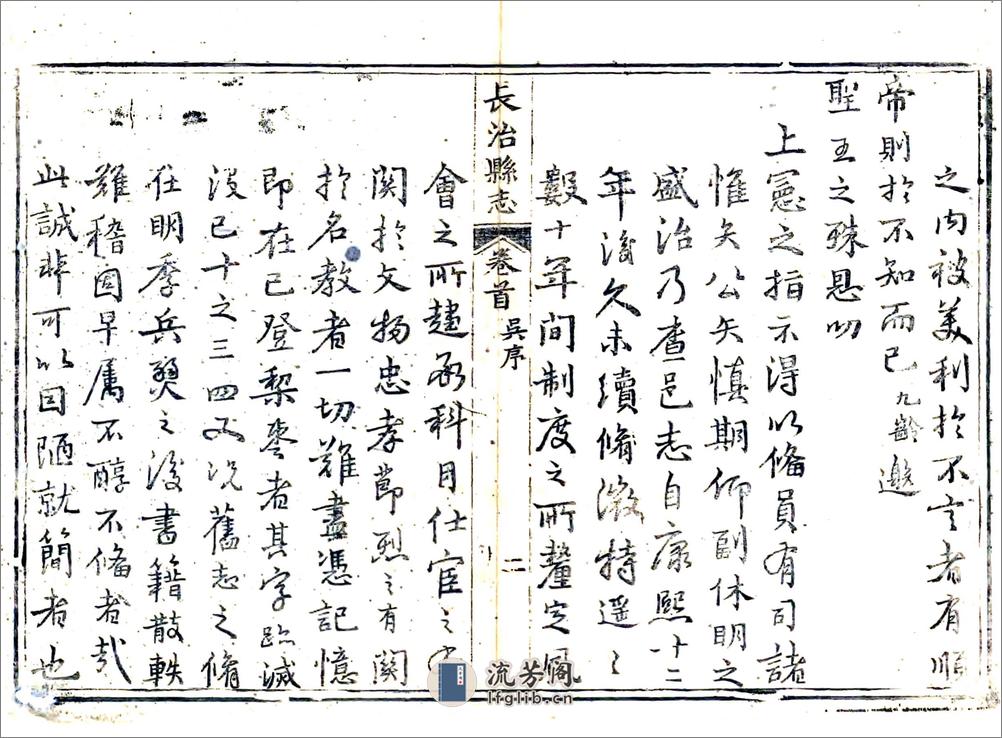 之内被美利於不言者有順
帝則於不知而已九齡邀
聖主之殊恩叨
上憲之指示得以俻員有司諸
惟矢公矢慎期仰副休明之
盛治乃查邑志自康熙十二
年後久未續脩漪特遥〻
數十年間制度之所釐定風
長治縣志 卷首 吳序 二
會之所趨承科目仕宦之
關於文物忠孝節烈之有關
於名教者一切難盡憑記憶
即在已登梨棗者其字跡滅
沒已十之三四又况舊志之脩
在明季兵燹之後書籍散軼
難稽固早屬不醇不俻者哉
此誠非可以因陋就簡者也
流芳閣
lfglib.cn